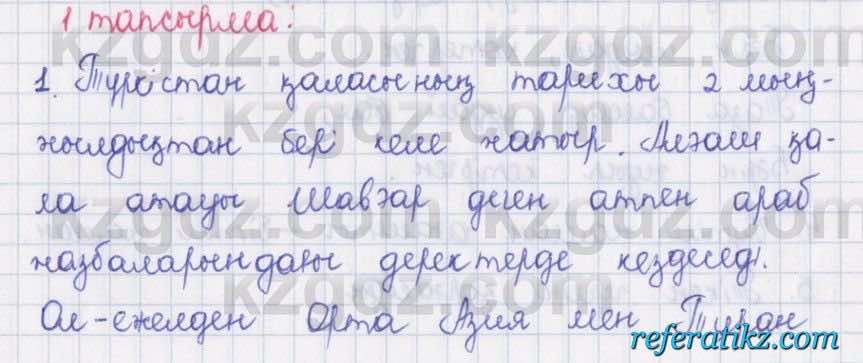 1 тапсырма:
1. Түркістан қаласының тарихы 2 мың-
жылдықтан бері келе жатыр. Алғаш қа-
ла атауы Шавғар деген атпен араб
жазбаларындағы деректерде кездеседі.
Ол-ежелден Орта Азия мен Тұран
referatikz.com